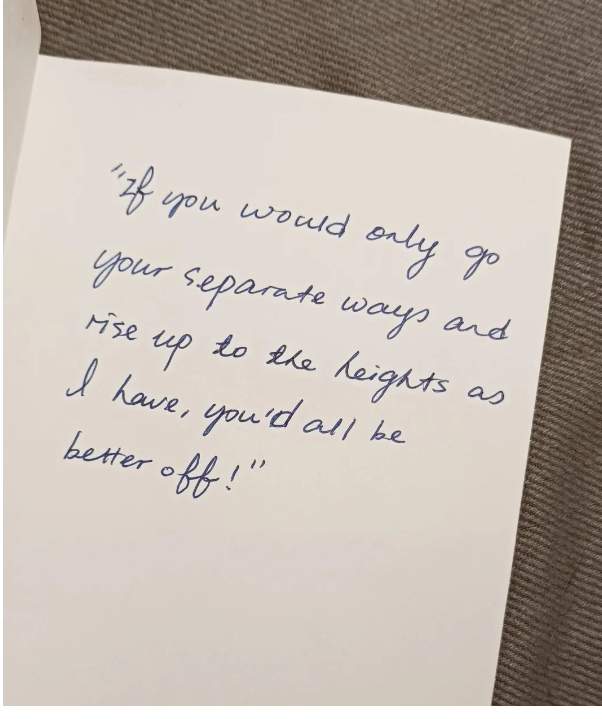 "If you would only go
your separate ways and
rise up to the heights as
I have, you'd all be
better off!"